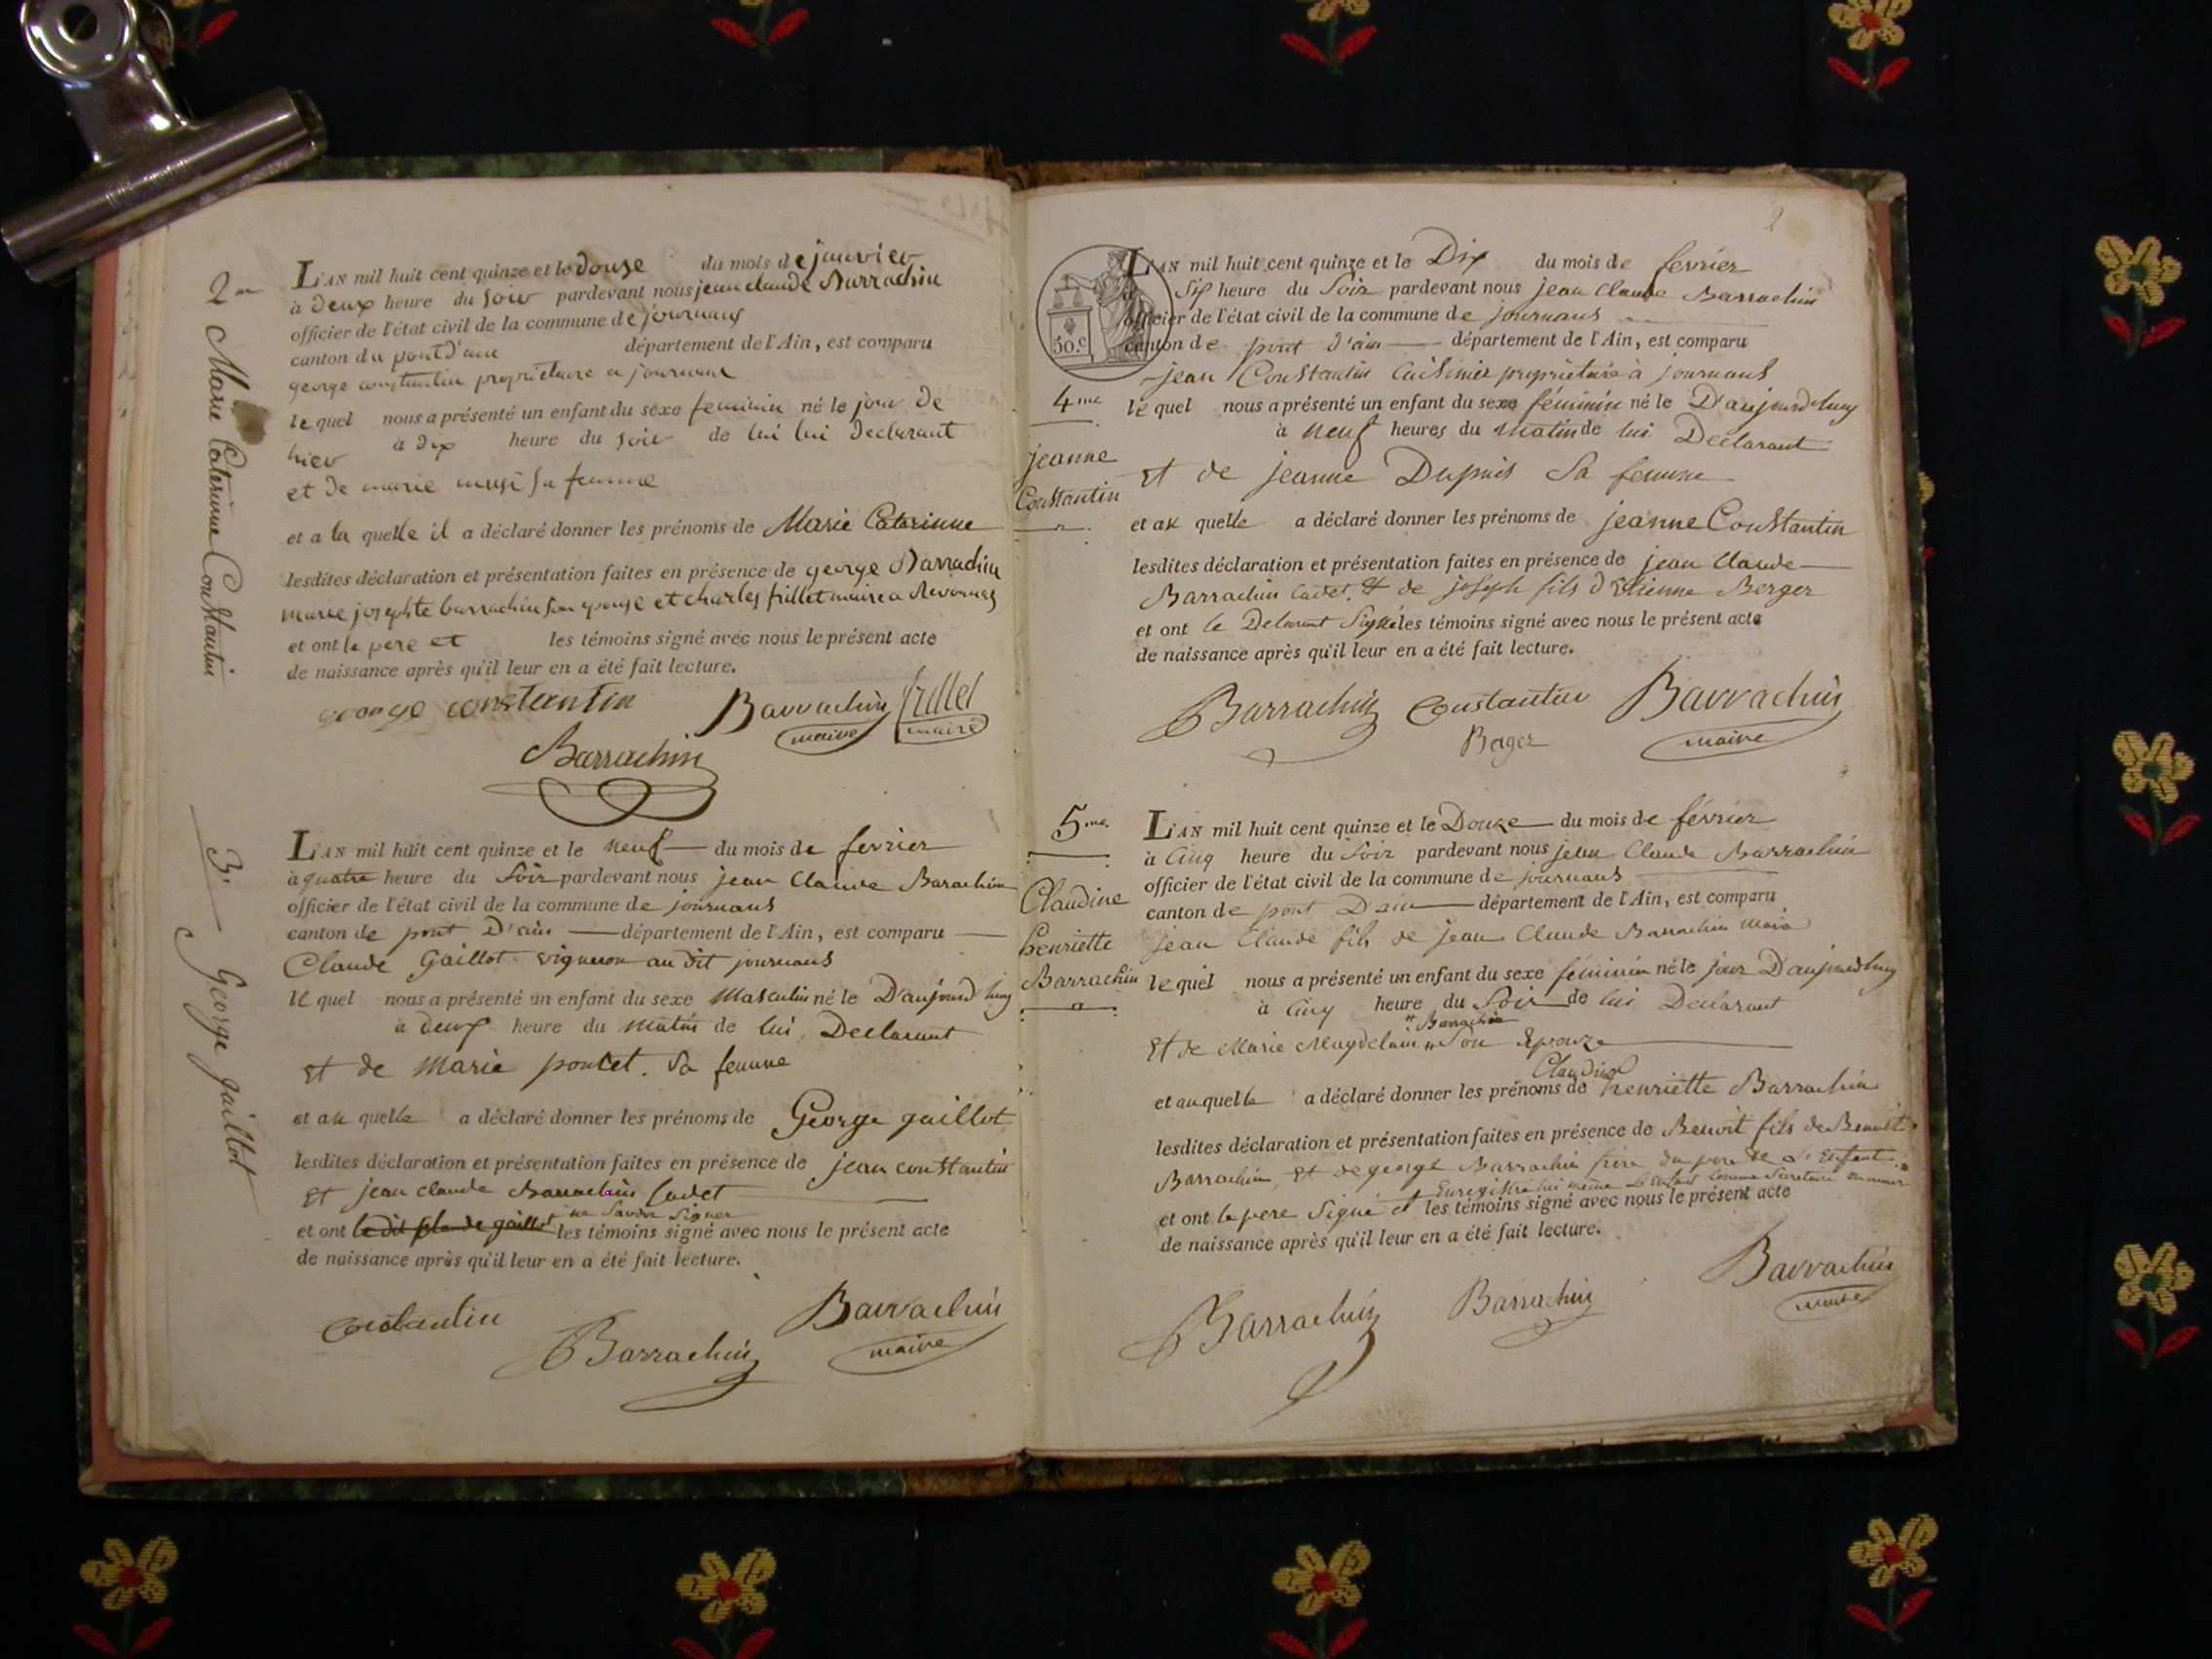 2me Marie Caterinne Constantin
L'AN mil huit cent quinze et le douze du mois de janvier
à deux heure du soir pardevant nous jean claude Barrachin
officier de l'état civil de la commune de journans
canton du pont d'ain département de l'Ain, est comparu
george constantin propriétaire a journans
le quel nous a présenté un enfant du sexe feminin né le jour de
hier à dix heure du soir de lui lui declarant
et de marie sa femme
et a la quelle il a déclaré donner les prénoms de Marie Caterinne
lesdites déclaration et présentation faites en présence de george Barrachin
marie josephte barrachin son epouse et charles frillet maire a Revonnas
et ont le pere et les témoins signé avec nous le présent acte
de naissance après qu'il leur en a été fait lecture.
george constantin Barrachin frillet
maire maire
Barrachin
3. George gaillot
L'AN mil huit cent quinze et le neuf du mois de fevrier
à quatre heure du Soir pardevant nous jean Claude Barachin
officier de l'état civil de la commune de journans
canton de pont D'ain département de l'Ain, est comparu
Claude Gaillot vigneron au dit journans
le quel nous a présenté un enfant du sexe Masculin né le D'aujourd'huy
à deux heure du matin de lui Declarant
et de Marie poncet. Sa femme
et au quelle a déclaré donner les prénoms de George gaillot
lesdites déclaration et présentation faites en présence de jean constantin
Et jean claude Barrachin Cadet
ne Savoir Signer
et ont le dit gaillot les témoins signé avec nous le présent acte
de naissance après qu'il leur en a été fait lecture.
Constantin Barrachin Barrachin
maire
2
50.c
4me
jeanne
Constantin
L'AN mil huit cent quinze et le Dix du mois de fevrier
à Six heure du Soir pardevant nous jean Claude Barrachin
officier de l'état civil de la commune de journans
canton de pont d'ain département de l'Ain, est comparu
jean Constantin Cuisinier propriétaire à journans
le quel nous a présenté un enfant du sexe féminin né le D'aujourd'huy
à neuf heures du matin de lui Declarant
Et de jeanne Dupuis Sa femme
et au quelle a déclaré donner les prénoms de jeanne Constantin
lesdites déclaration et présentation faites en présence de jean Claude
Barrachin Cadet. & de joseph fils d'Etienne Berger
et ont le Delarant Signé les témoins signé avec nous le présent acte
de naissance après qu'il leur en a été fait lecture.
Barrachin Constantin Barrachin
Berger maire
5me
Claudine
henriette
Barrachin
L'AN mil huit cent quinze et le Douze du mois de février
à Cinq heure du Soir pardevant nous jean Claude Barrachin
officier de l'état civil de la commune de journans
canton de pont D'ain département de l'Ain, est comparu
jean Claude fils de jean Claude Barrachin Maire
le quel nous a présenté un enfant du sexe féminin né le jour D'aujourdhuy
à Cinq heure du Soir de lui Declarant
Barrachin
Et de Marie Magdelaine Son Epouze
Claudine
et au quelle a déclaré donner les prénoms de henriette Barrachin
lesdites déclaration et présentation faites en présence de Benoit fils de Benoit
Barrachin, Et de george Barrachin frère du pere de Enfant
Enregistré lui même Comme Secretaire
et ont le pere Signé et les témoins signé avec nous le présent acte
de naissance après qu'il leur en a été fait lecture.
Barrachin Barrachin Barrachin
maire